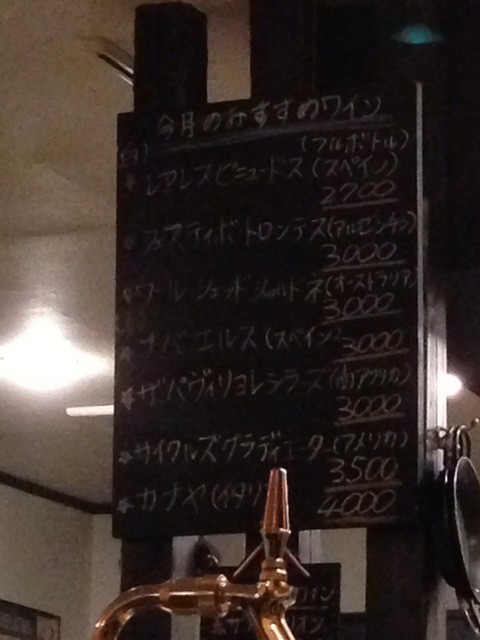 今月のおすすめワイン
(フルボトル)
白)
レアレスビニュードス(スペイン)
2700
フェスティボトロンテス(アルゼンチン)
3000
ウールシェッドシャルドネ(オーストラリア)
3000
ナバエルス(スペイン)
3000
ザ パヴィリヨンシラーズ(南アフリカ)
3000
サイクルズグラディエーター(アメリカ)
3500
カナヤ(イタリ
4000
イン